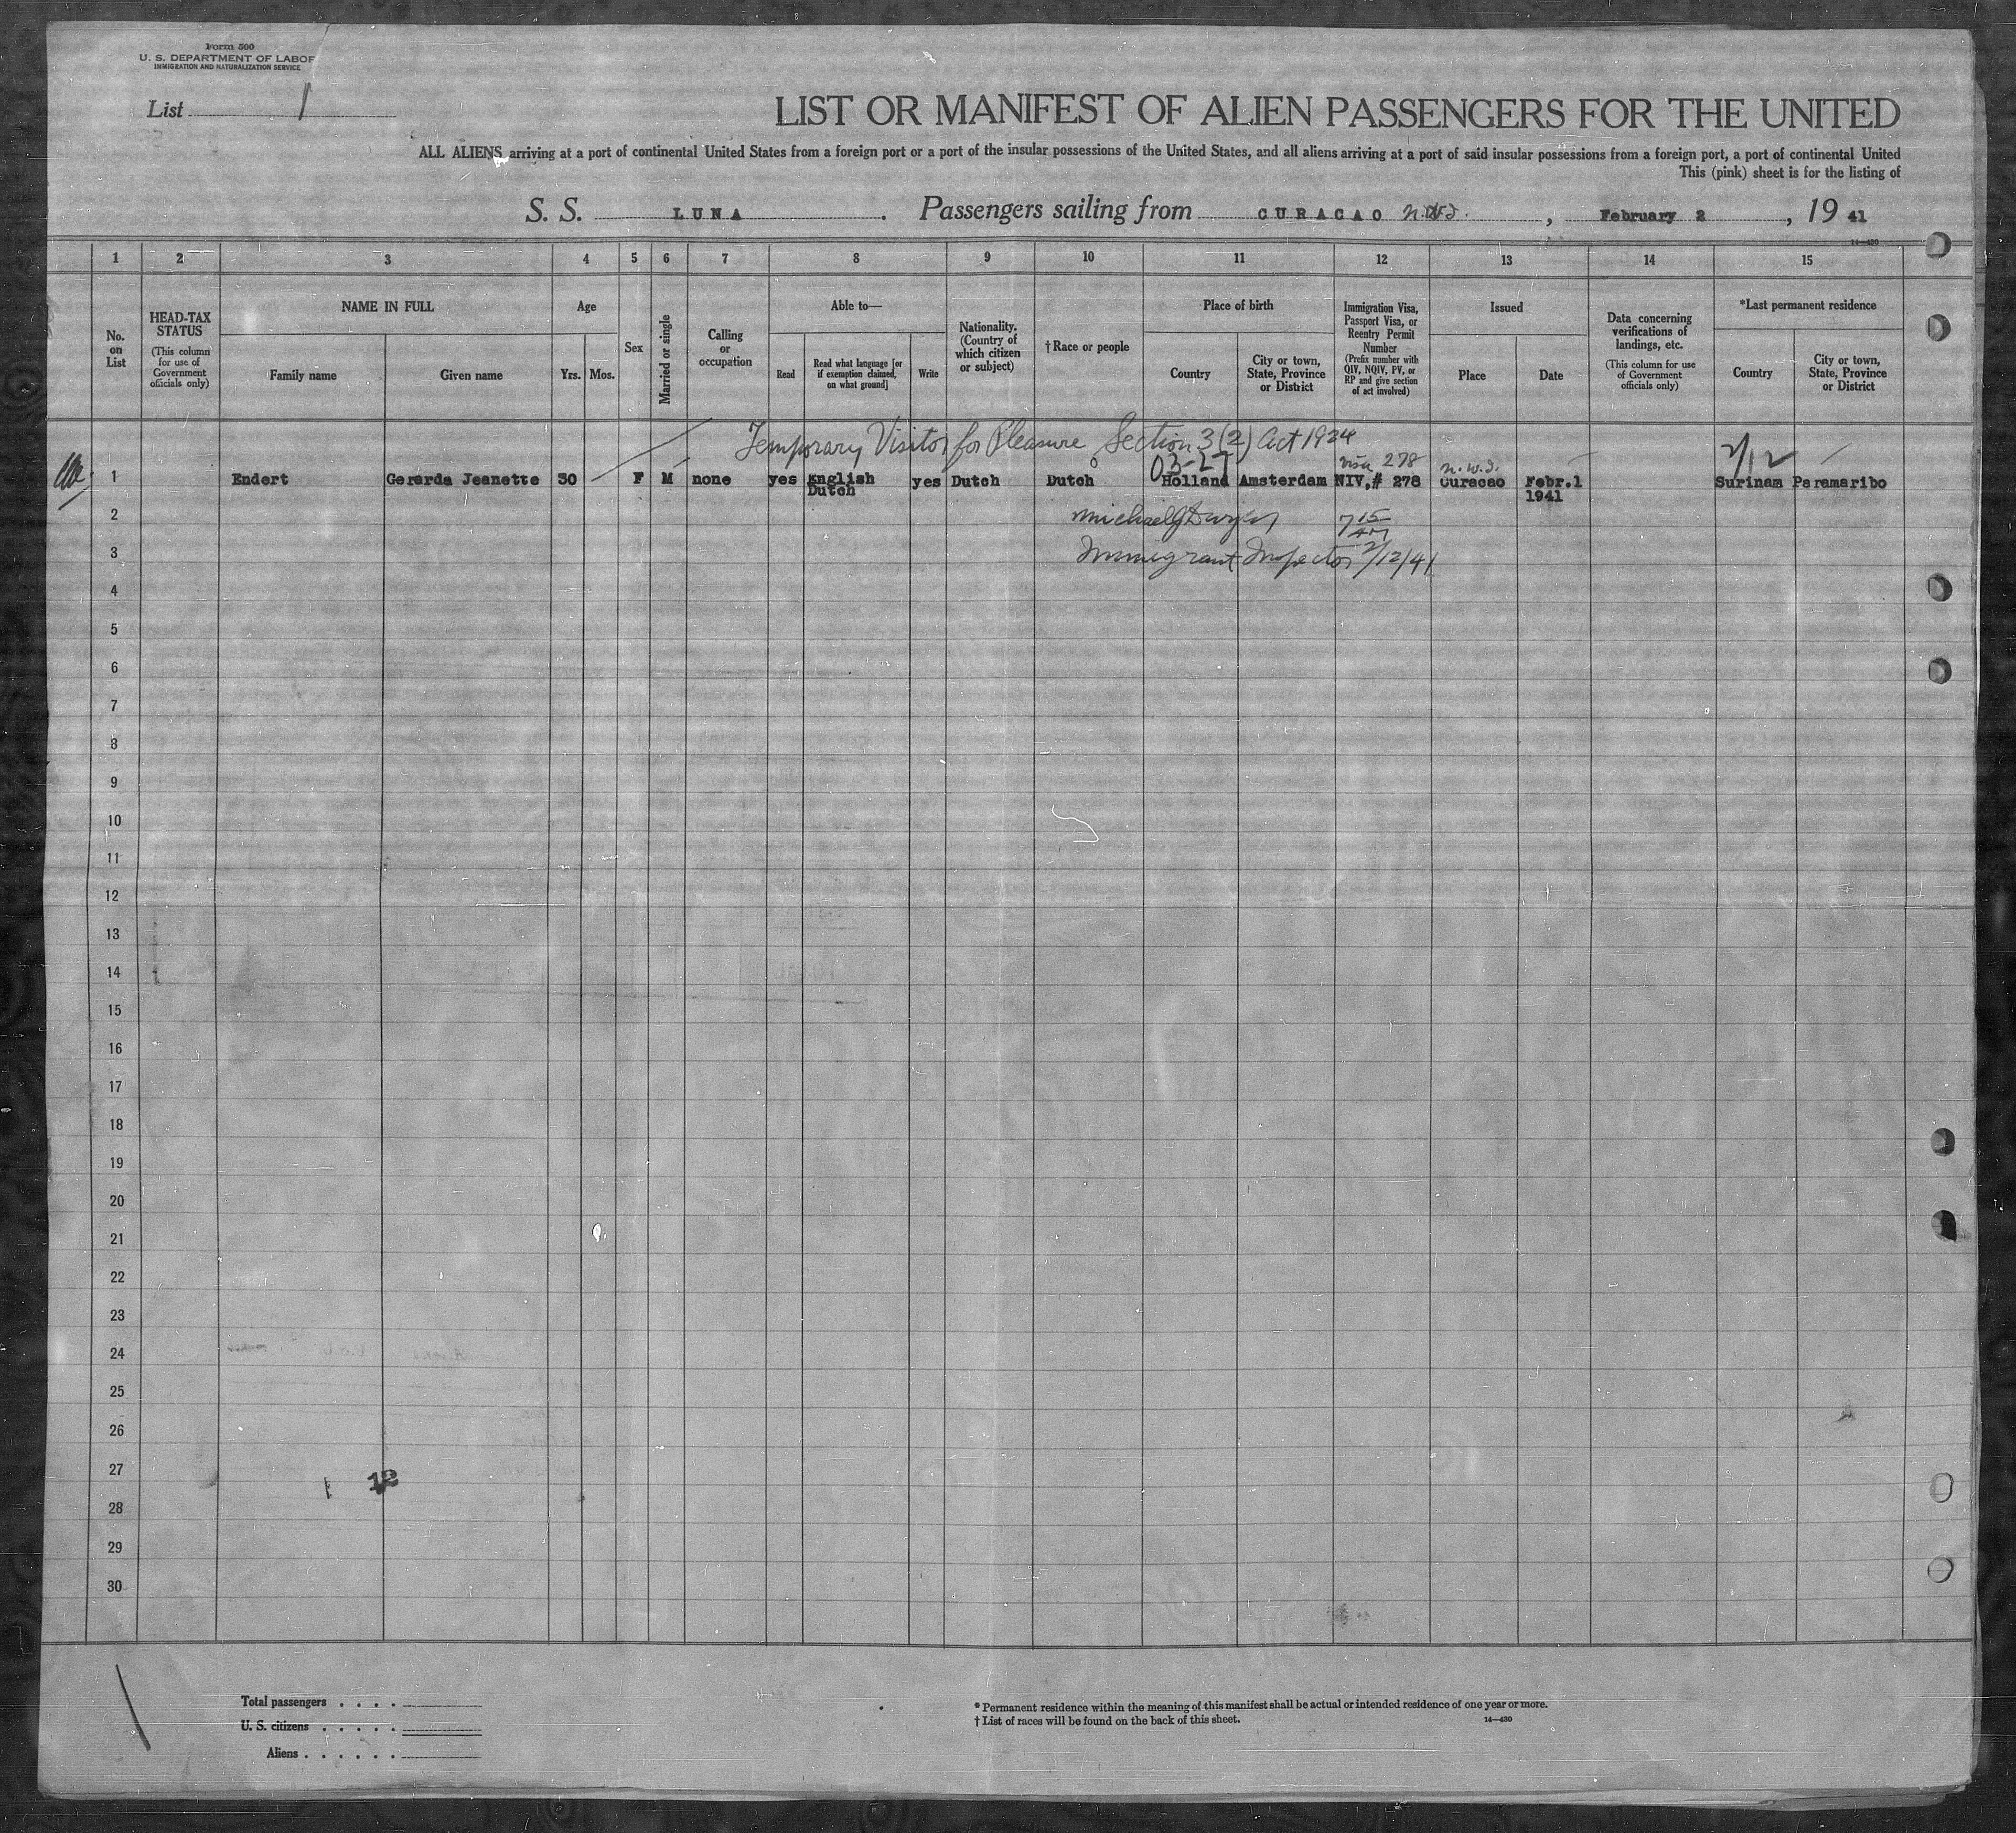 Form 500
U. S. DEPARTMENT OF LABOR
IMMIGRATION AND NATURALIZATION SERVICE
List 1
LIST OR MANIFEST OF ALIEN PASSENGERS FOR THE UNITED
ALL ALIENS arriving at a port of continental United States from a foreign port or a port of the insular possessions of the United States, and all aliens arriving at a port of said insular possessions from a foreign port, a port of continental United
This (pink) sheet is for the listing of
S. S. LUNA. Passengers sailing from CURACAO N.W.I., February 2, 19 41
14—430
1 2 3 4 5 6 7 8 9 10 11 12 13 14 15
No. on List
HEAD-TAX STATUS
(This column for use of Government officials only)
NAME IN FULL
Family name Given name
Age
Yrs. Mos.
Sex
Married or single
Calling or occupation
Able to—
Read
Read what language [or if exemption claimed, on what ground]
Write
Nationality. (Country of which citizen or subject)
†Race or people
Place of birth
Country
City or town, State, Province or District
Immigration Visa, Passport Visa, or Reentry Permit Number
(Prefix number with QIV, NQIV, PV, or RP and give section of act involved)
Issued
Place Date
Data concerning verifications of landings, etc.
(This column for use of Government officials only)
*Last permanent residence
Country
City or town, State, Province or District
Temporary Visitor for Pleasure Section 3(2) Act 1924
03-27 Visa 278 N.W.I. 2/12
1 Endert Gerarda Jeanette 30 F M none yes English yes Dutch Dutch Holland Amsterdam NIV,# 278 Curacao Febr.1 Surinam Paramaribo
Dutch 1941
2 Michael J Dwyer 7 15
3 Immigrant Inspector 2/12/41
4
5
6
7
8
9
10
11
12
13
14
15
16
17
18
19
20
21
22
23
24
25
26
27
12
28
29
30
Total passengers . . . .
U. S. citizens . . . . .
Aliens . . . . . .
* Permanent residence within the meaning of this manifest shall be actual or intended residence of one year or more.
† List of races will be found on the back of this sheet.
14—430